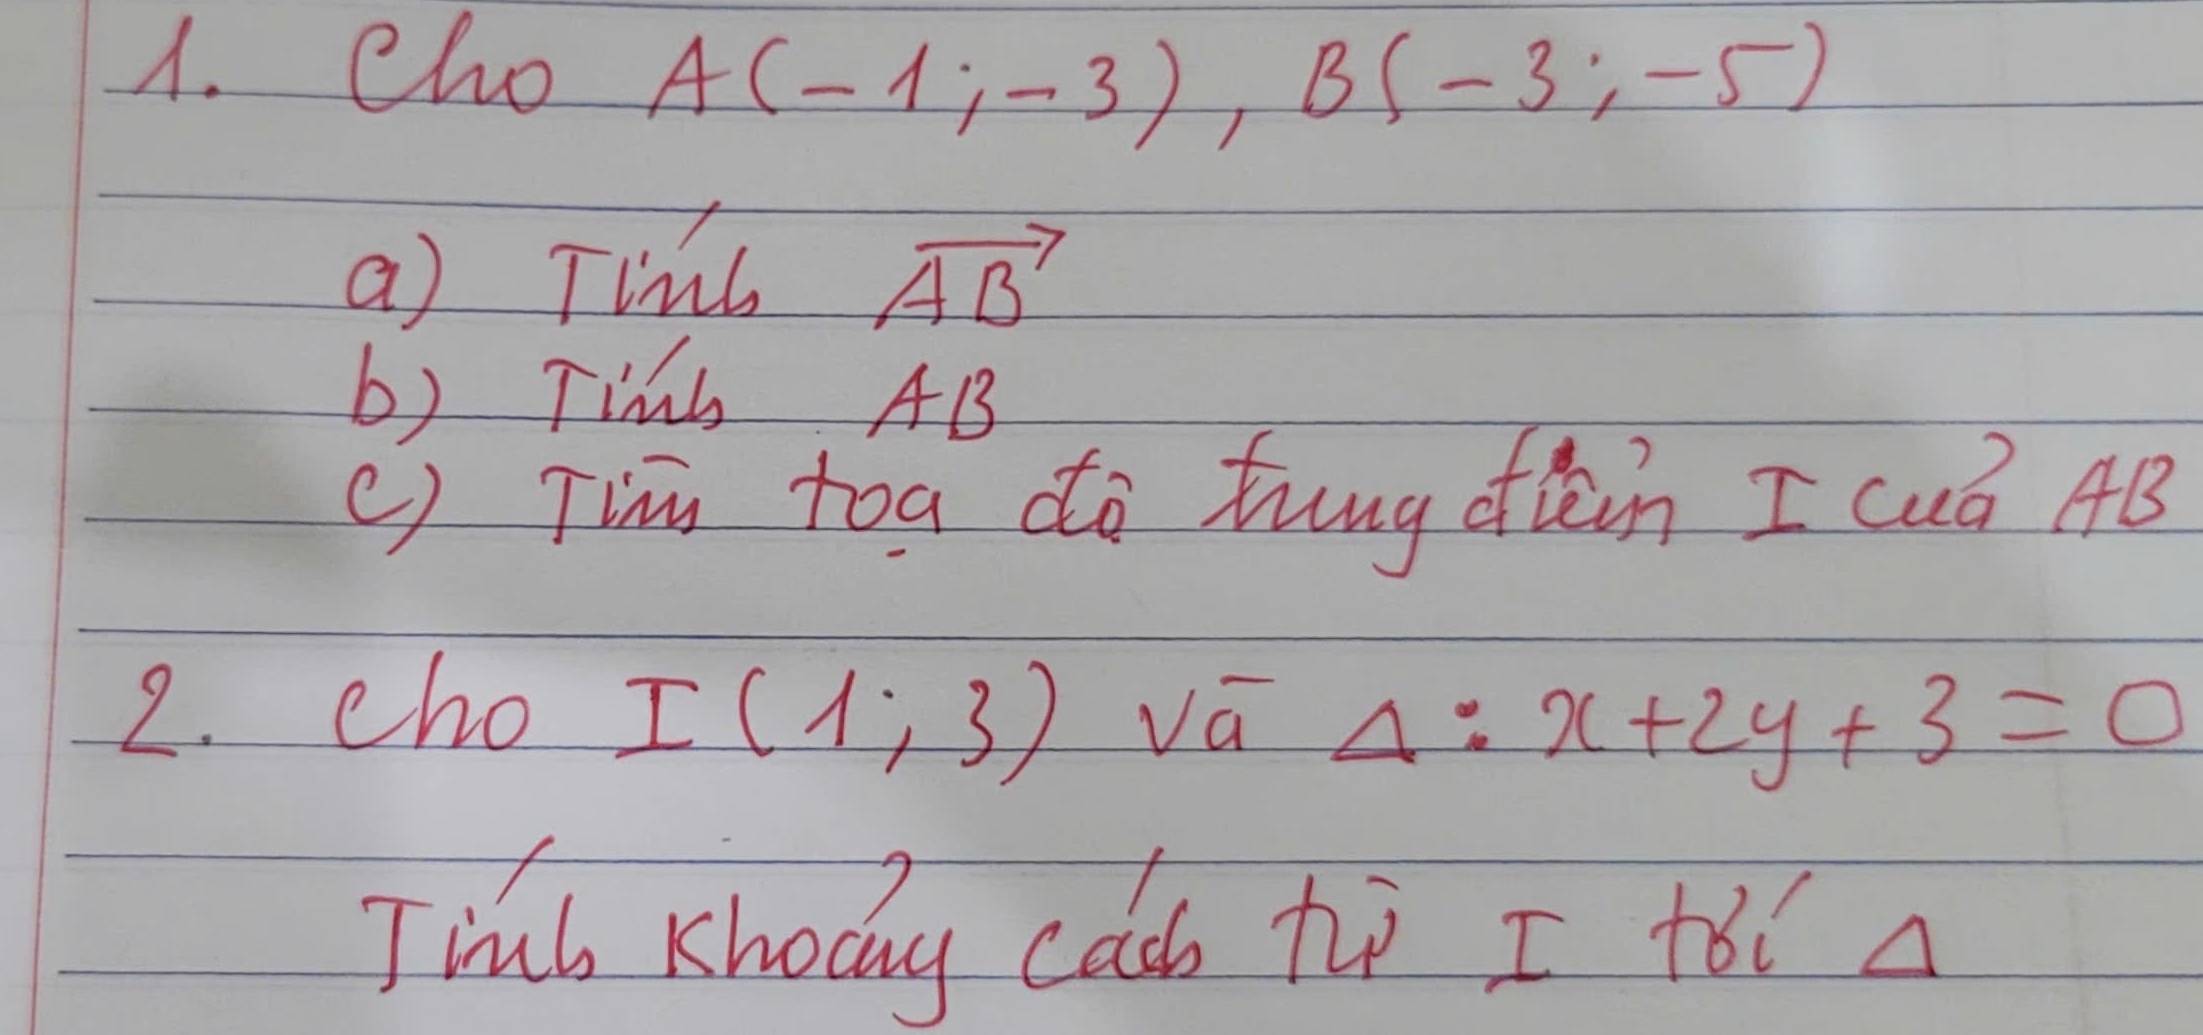 1. Cho A(-1;-3), B(-3;-5)
a) Tính \overrightarrow{AB}
b) Tính AB
c) Tìm tọa độ trung điểm I của AB
2. Cho I(1;3) và Δ: x+2y+3=0
Tính khoảng cách từ I tới Δ